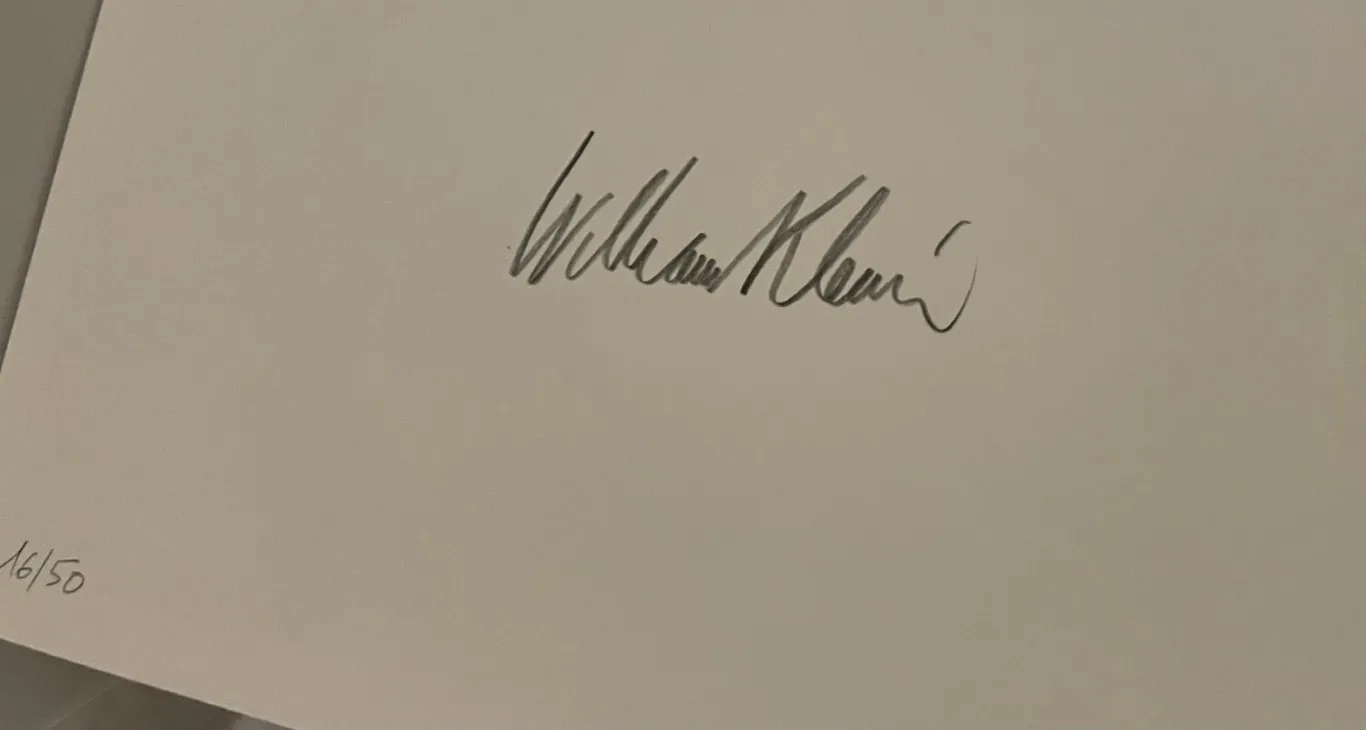 William Klein
16/50